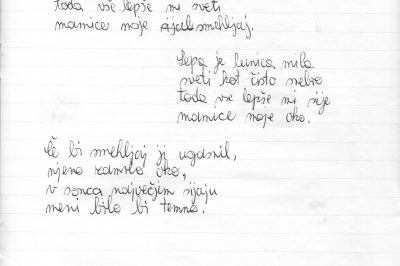 toda vse lepše mi sveti
mamice moje sijaj smehljaj.
Lepa je lunica mila
sveti kot čisto srebro
toda vse lepše mi sije
mamice moje oko.
Če bi smehljaj ji ugasnil,
njeno zamrlo oko,
v sonca največjim sijaju
meni bilo bi temno.